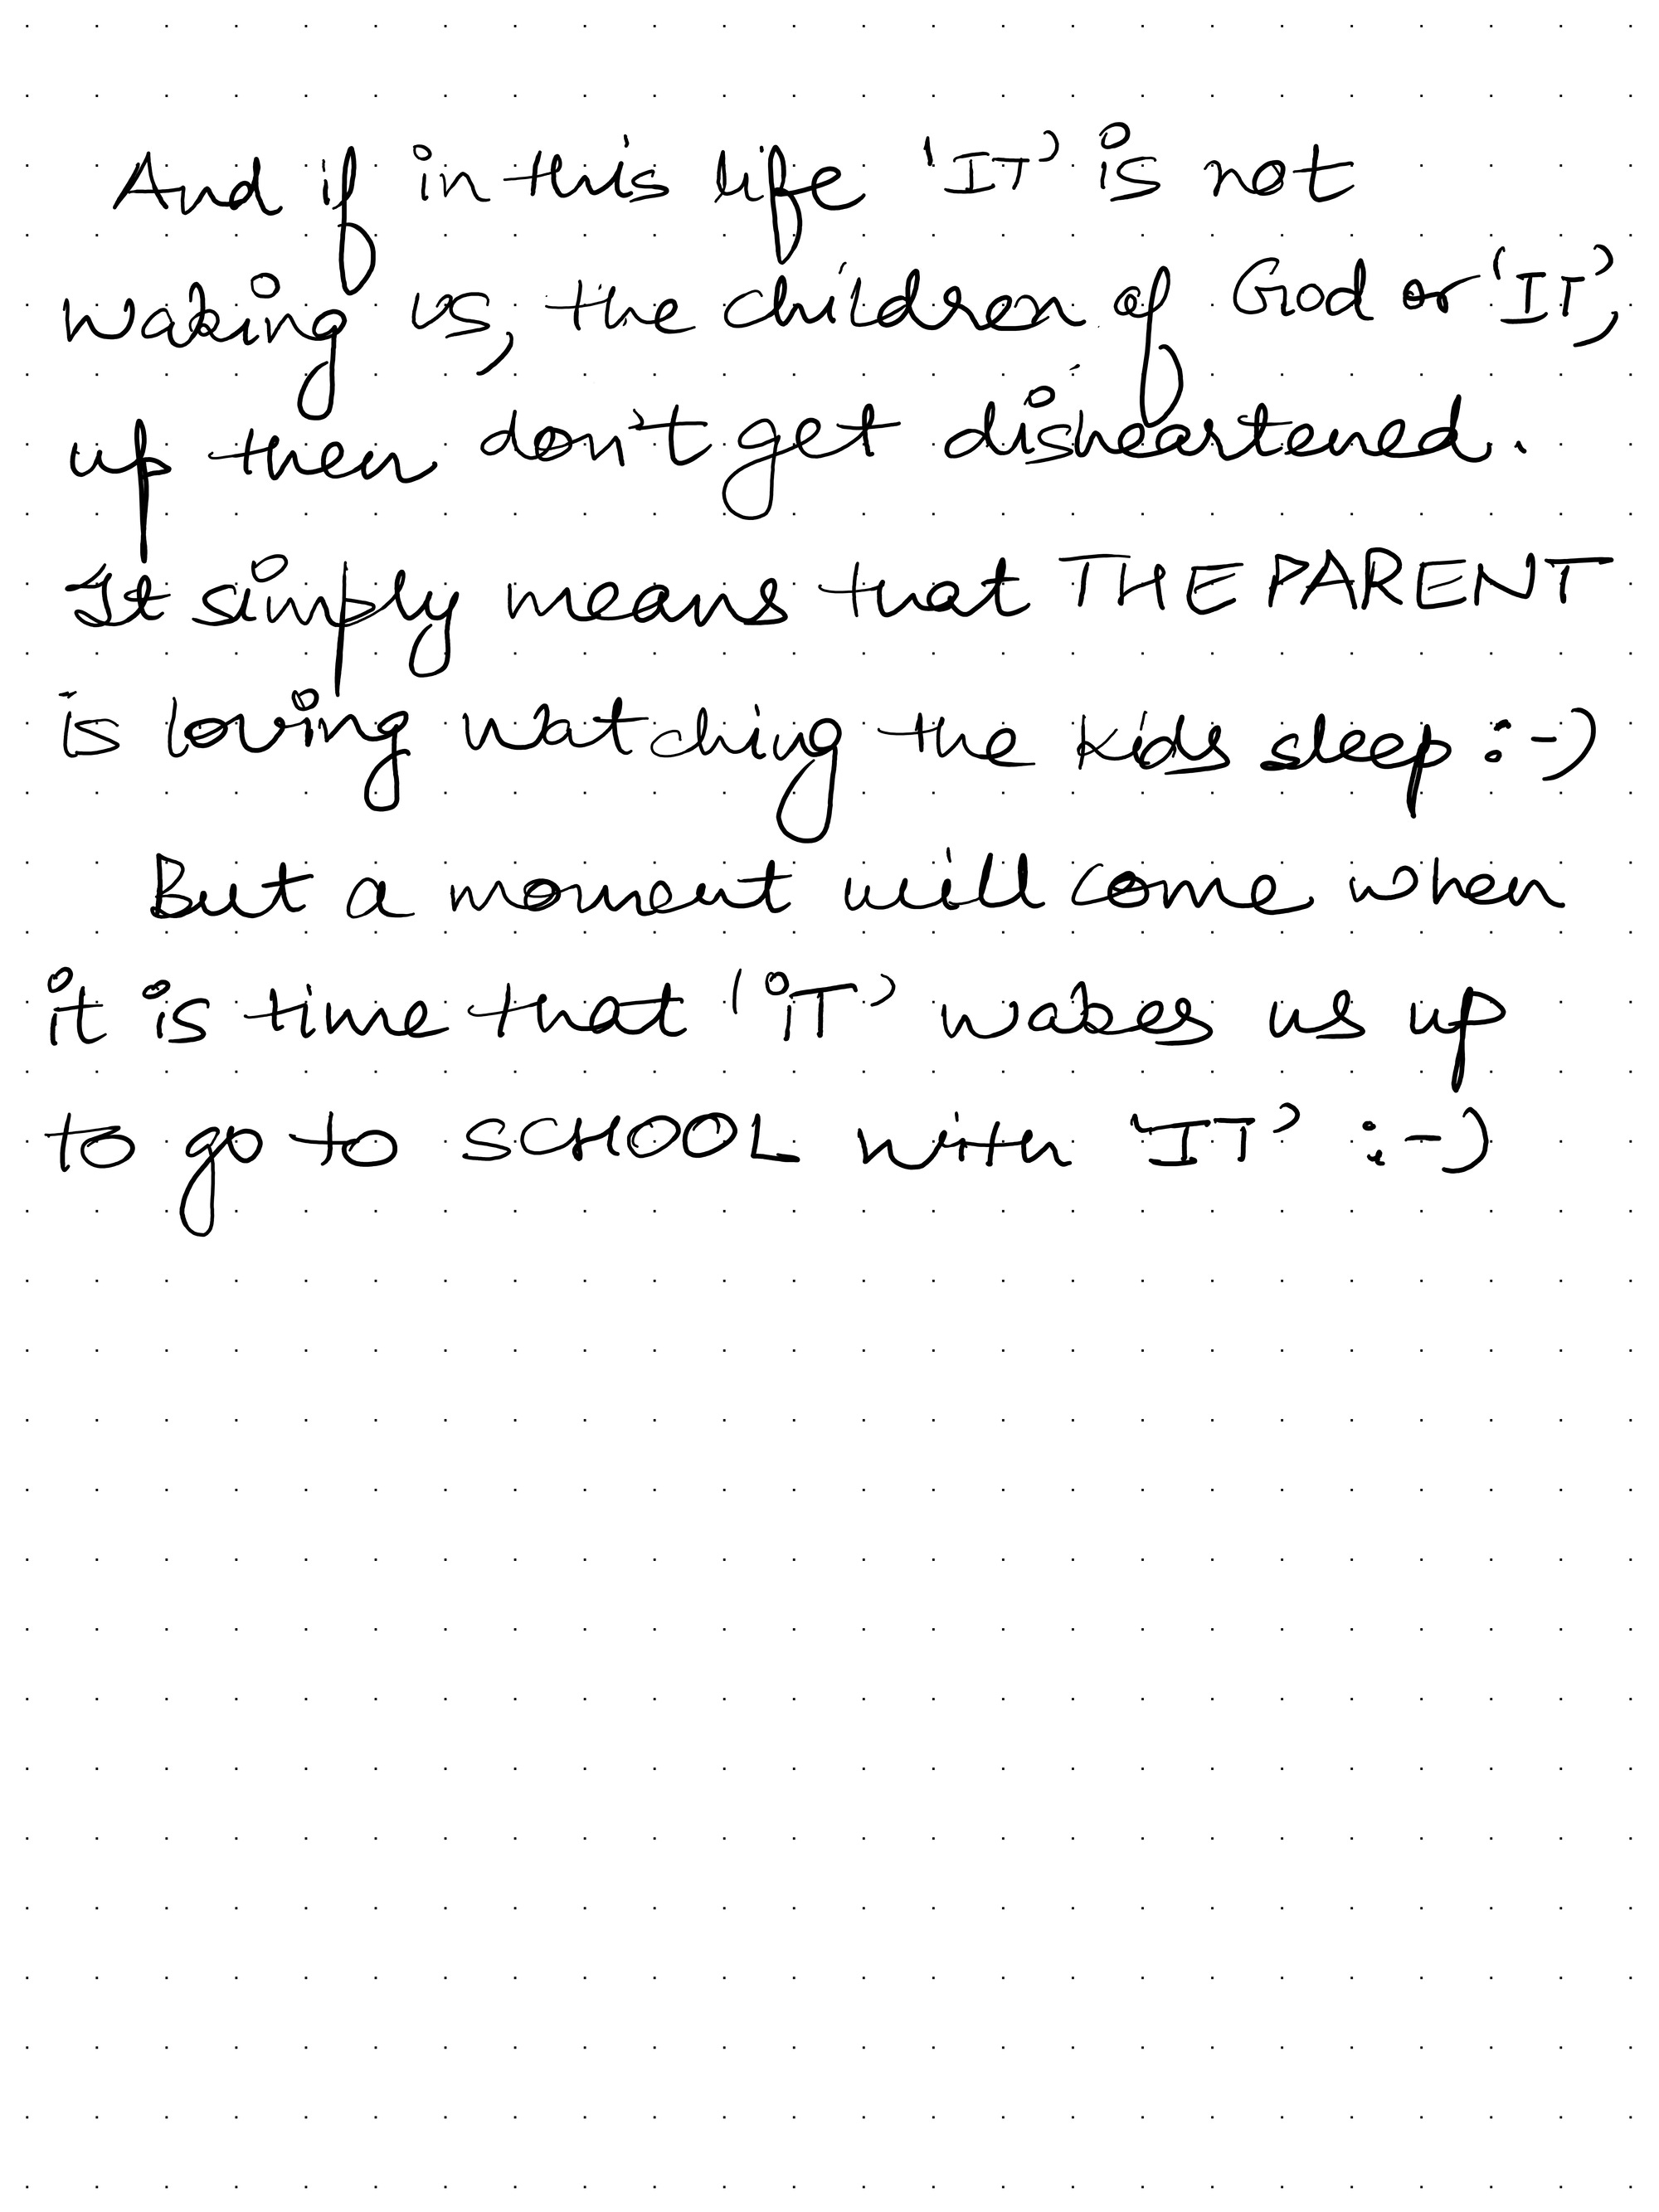 And if in this life 'IT' is not
waking us, the children of God or 'IT',
up then don't get disheartened.
It simply means that THE PARENT
is loving watching the kids sleep :-)
But a moment will come when
it is time that 'IT' wakes us up
to go to SCHOOL with 'IT' :-)